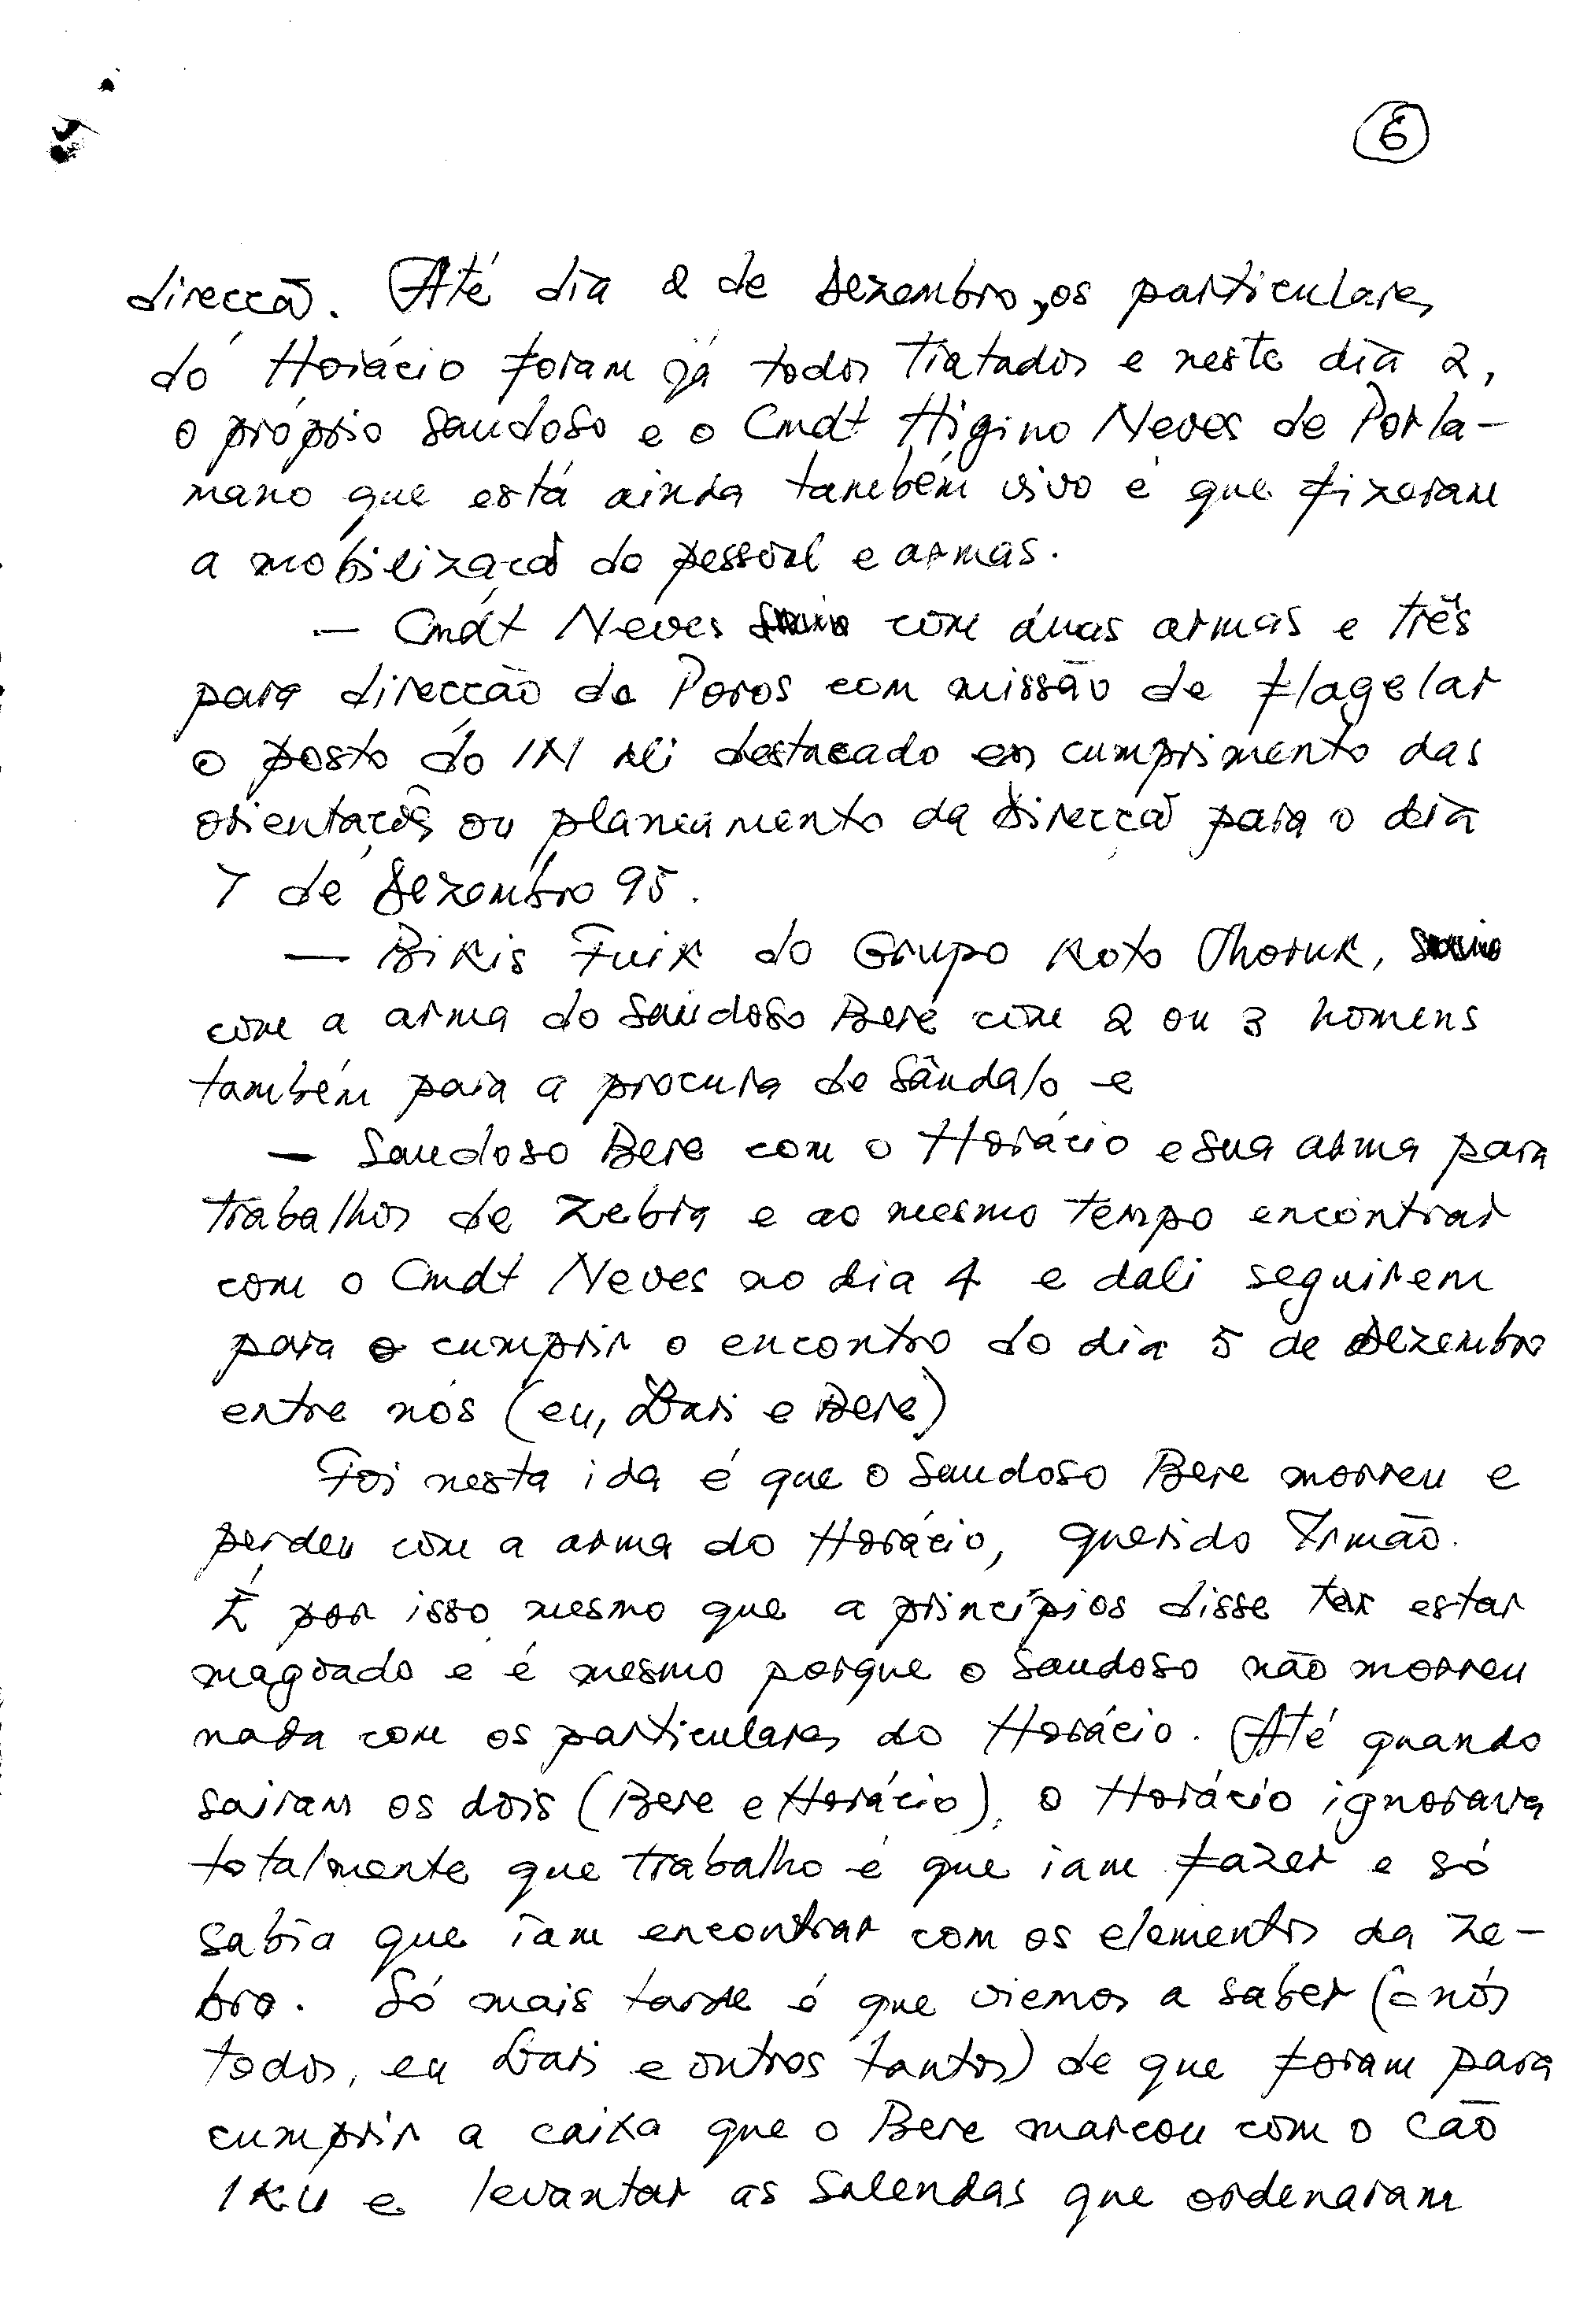 6
direccã. Até dia 2 de Dezembro, os particulares
do Horácio foram já todos tratados e neste dia 2,
o próprio saudoso e o Cmdt Higino Neves de Porla-
mano que está ainda também vivo é que fizeram
a mobilizaçã do pessoal e armas.
— Cmdt Neves saiu com duas armas e três
para direcção de Poros com missão de flagelar
o posto do IN ali destacado em cumprimento das
orientaçõs ou planeamento da Direccã para o dia
7 de Dezembro 95.
— Bikis Fuik do Grupo Koto Thoruk, saiu
com a arma do saudoso Bere com 2 ou 3 homens
também para a procura de sândalo e
— Saudoso Bere com o Horácio e sua arma para
trabalhos de zebra e ao mesmo tempo encontrar
com o Cmdt Neves no dia 4 e dali seguirem
para o cumprir o encontro do dia 5 de Dezembro
entre nós (eu, Dari e Bere)
Foi nesta ida é que o saudoso Bere morreu e
perdeu com a arma do Horácio, querido Irmão.
É por isso mesmo que a princípios disse ter estar
magoado e é mesmo porque o saudoso não morreu
nada com os particulares do Horácio. Até quando
sairam os dois (Bere e Horácio), o Horácio ignorava
totalmente que trabalho é que iam fazer e só
sabia que iam encontrar com os elementos da ze-
bra. Só mais tarde é que viemos a saber (nós
todos, eu Dari e outros tantos) de que foram para
cumprir a caixa que o Bere marcou com o cão
IKU e levantar as salendas que ordenaram